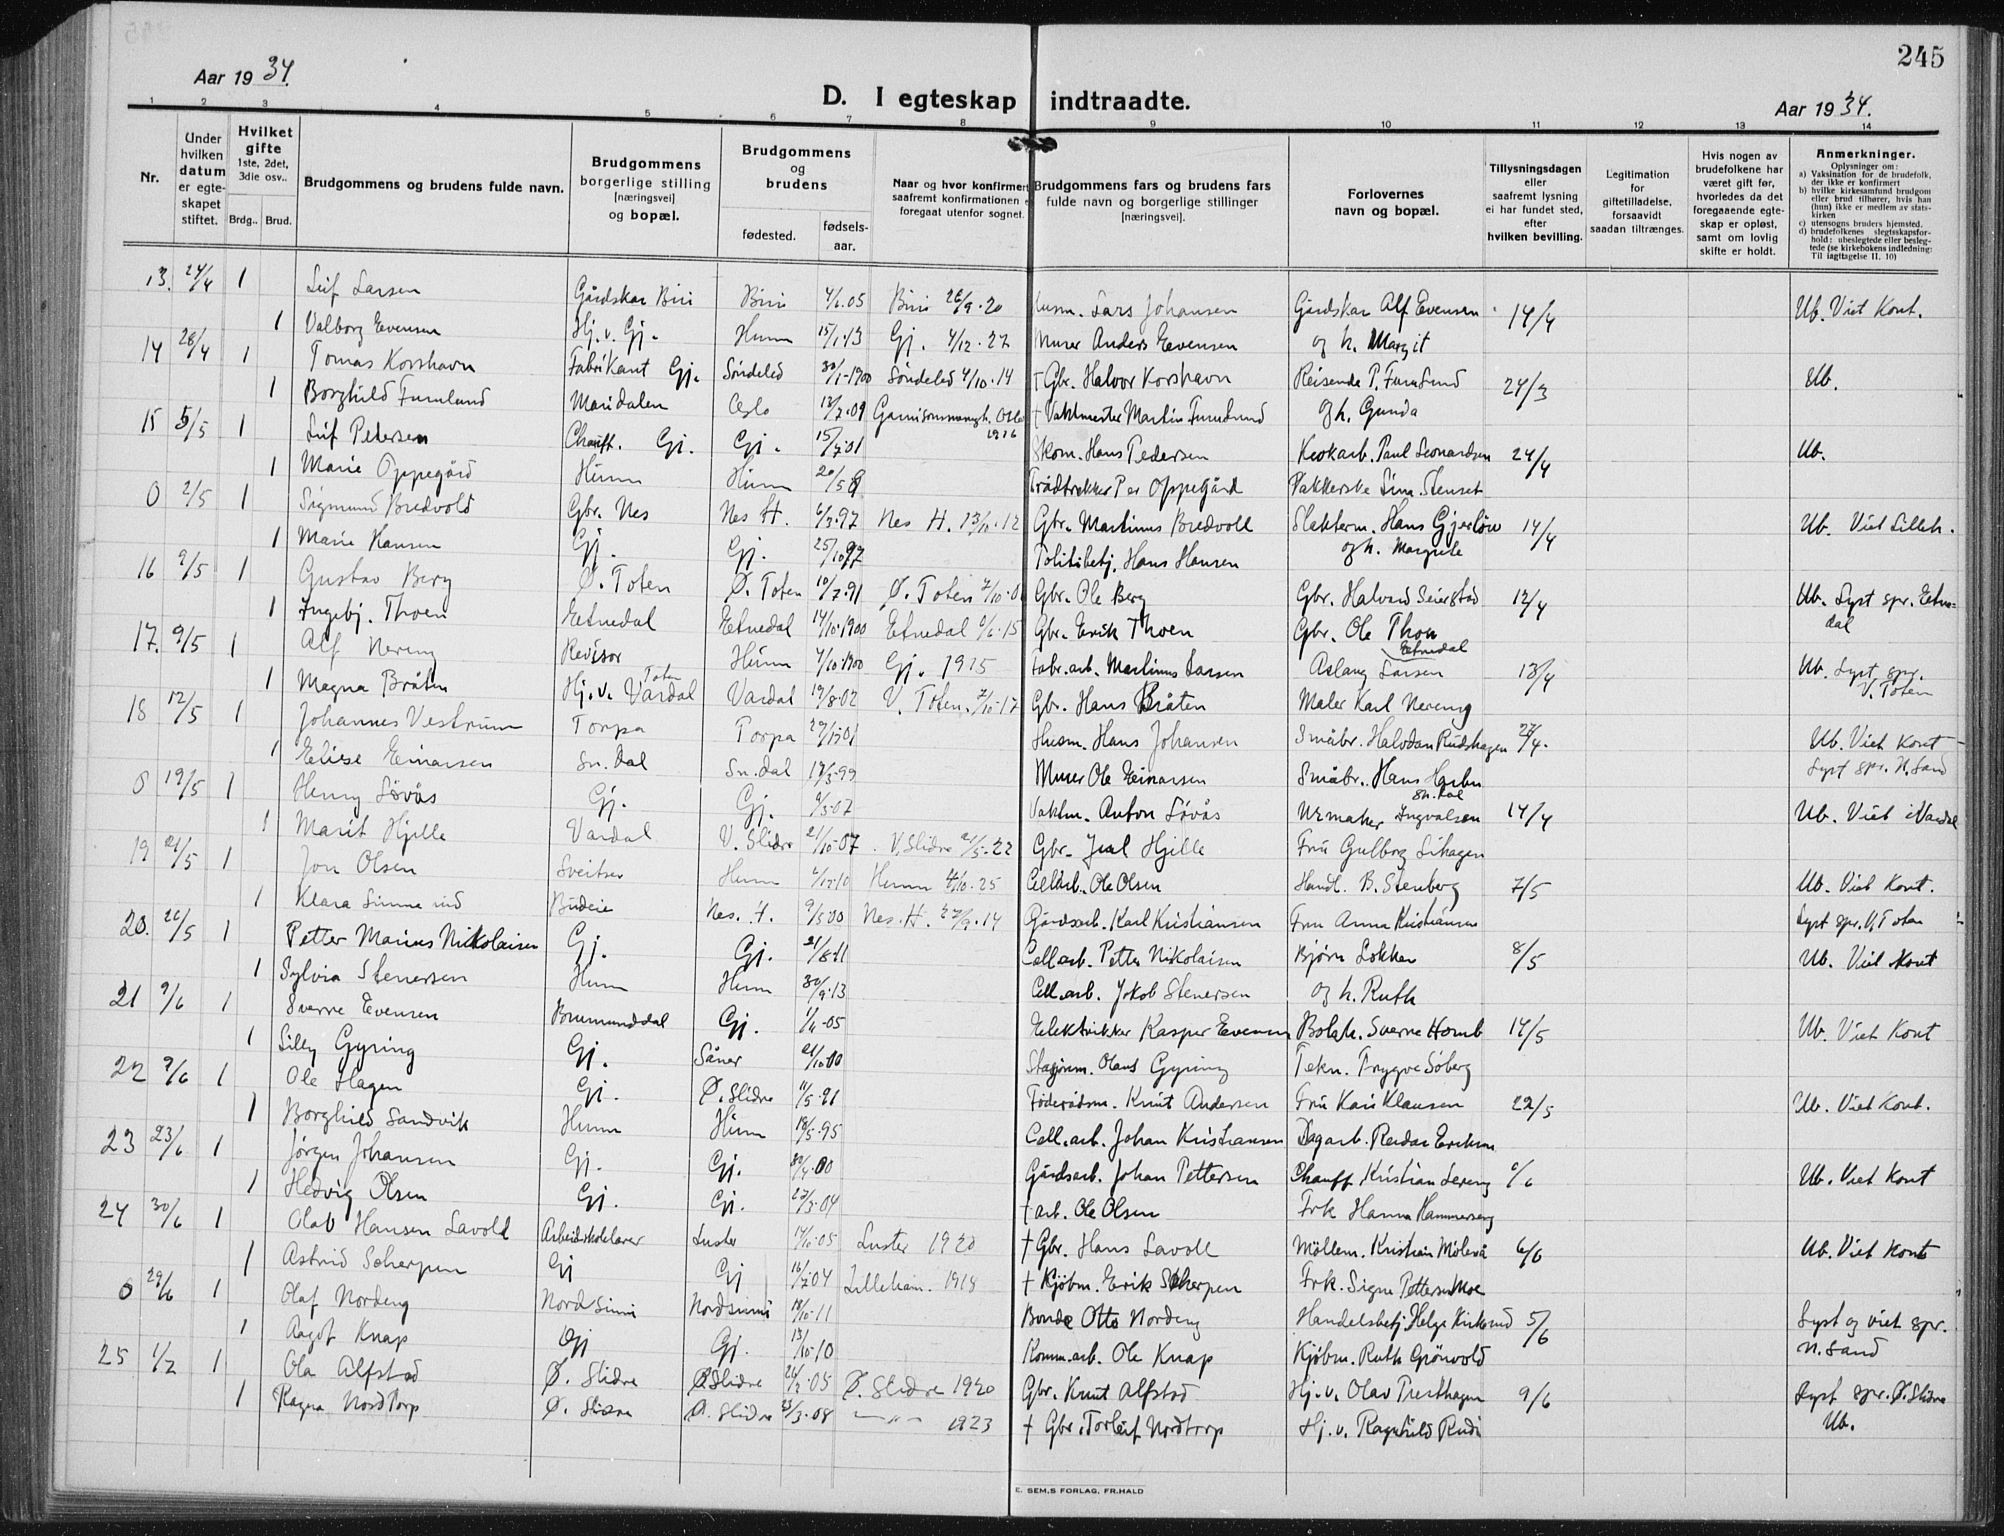 245
Aar 1934.
D. I egteskap indtraadte.
Aar 1934.
1 2 3 4 5 6 7 8 9 10 11 12 13 14
Nr.
Under hvilken datum er egteskapet stiftet.
Hvilket gifte 1ste, 2det, 3die osv..
Brdg.. Brud.
Brudgommens og brudens fulde navn.
Brudgommens borgerlige stilling [næringsvei] og bopæl.
Brudgommens og brudens
fødested. fødselsaar.
Naar og hvor konfirmert saafremt konfirmationen foregaat utenfor sognet.
Brudgommens fars og brudens fars fulde navn og borgerlige stillinger [næringsvei].
Forlovernes navn og bopæl.
Tillysningsdagen eller saafremt lysning ei har fundet sted, efter hvilken bevilling.
Legitimation for giftetilladelse, forsaavidt saadan tiltrænges.
Hvis nogen av brudefolkene har været gift før, hvorledes da det foregaaende egteskap er opløst, samt om lovlig skifte er holdt.
Anmerkninger.
Oplysninger om:
a) Vaksination for de brudefolk, der ikke er konfirmert
b) hvilke kirkesamfund brudgom eller brud tilhører, hvis han (hun) ikke er medlem av statskirken
c) utensogns bruders hjemsted.
d) brudefolkenes slegtsskapsforhold: ubeslegtede eller beslegtede (se kirkebokens indledning: Til iagttagelse II. 10)
13. 24/4 1 Leif Larsen Gårdskar Biri Biri 4/6.05 Biri 26/9.20 Husm. Lars Johansen Gårdskar Alf Evensen 14/4 Ub. Viet Kont.
1 Valborg Evensen Hj.v. Gj. Hunn 15/1.13 Gj. 4/12.27 Murer Anders Evensen og h. Margit
14 28/4 1 Tomas Korshavn Fabrikant Gj. Søndeled 30/1-1900 Søndeled 4/10.14 † Gbr. Halvor Korshavn Reisende P. Furulund 24/3 Ub.
1 Borghild Furulund Maridalen Oslo Garnisonsmenigh. Oslo 1926 † Vaktmester Martin Furulund og h. Gunda
15 5/5 1 Leif Petersen Chauff. Gj. Gj. 15/7.01 Skom. Hans Pedersen Krokarb. Paul Leonardsen 24/4 Ub.
1 Marie Oppegård Hunn Hunn Trådtrekker Per Oppegård Pakkerske Lina Stenset
0 2/5 1 Sigmund Bredvold Gbr. Nes Nes H. 6/3.97 Nes H. 13/10.12 Gbr. Martinus Bredvold Slakterm. Hans Gjerløw 14/4 Ub. Viet Lilleh.
1 Marie Hansen Gj. Gj. 25/10.97 Politibetj. Hans Hansen og h. Margrete
16 9/5 1 Gustav Berg Ø. Toten Ø. Toten 10/7.91 Ø. Toten Gbr. Ole Berg Gbr. Halvard Seierstad 12/4 Ub. Lyst spr. Etnedal
1 Ingebj. Thoen Etnedal Etnedal 14/10.1900 Etnedal 6/6.15 Gbr. Erik Thoen Gbr. Ole Thon Etnedal
17. 9/5 1 Alf Nereng Revisor Hunn 4/10.1900 Gj. 1915 Fabr.arb. Martinus Larsen Aslaug Larsen 13/4 Ub. Lyst spr. V. Toten
1 Magna Bråten Hj.v. Vardal Toten Vardal 19/8.02 V. Toten. 7/10.17 Gbr. Hans Bråten Maler Karl Nereng
18 12/5 1 Johannes Vestrum Torpa Torpa Husm. Hans Johansen Småbr. Halvdan Rudshagen 27/4. Ub. Viet Kont
1 Elise Einarsen Sn.dal Sn.dal Murer Ole Einarsen Småbr. Hans Sn.dal Lyst spr. N. Land
0 19/5 1 Henry Løvås Gj. Gj. Vaktm. Anton Løvås Urmaker Ingvalsen 14/4 Ub. Viet i Vardal
1 Marit Hjelle Vardal V. Slidre 21/10.07 V. Slidre 21/5.22 Gbr. Hjelle Fru Gulborg Lihagen
19 21/5 1 Jon Olsen Sveitser Hunn Hunn 4/10.25 Cell.arb. Ole Olsen Handl. B. Stenberg 7/5 Ub. Viet Kont.
1 Klara Budeie Nes. H. 9/5.00 Nes. H. 27/9.14 Gårdsarb. Karl Kristiansen Fru Anna Kristiansen Lyst spr. V. Toten
20. 26/5 1 Petter Marius Nikolaisen Gj. Gj. 21/8.11 Cell.arb. Petter Nikolaisen Bjørn Løkken 8/5 Ub. Viet Kont
1 Sylvia Stenersen Hunn Hunn 30/9.13 Cell.arb. Jakob Stenersen og h. Ruth
21 9/6 1 Sverre Evensen Brummunddal Gj. 1/4.05 Elektrikker Kasper Evensen Bokh. Sverre Homb 14/5 Ub. Viet Kont
1 Lilly Gyring Gj. Såner 21/10.00 Stasjonm. Olaus Gyring Tekn. Trygve Søberg
22 9/6 1 Ole Hagen Gj. Ø. Slidre 11/5.91 Föderådsm. Knut Andersen Fru Kari Klausen 22/5 Ub. Viet Kont.
1 Borghild Sandvik Hunn Hunn 18/5.95 Cell.arb. Johan Kristiansen Dagarb. Reidar Eriksen
23 23/6 1 Jørgen Johansen Gj. Gj. 30/4.00 Gårdsarb. Johan Pettersen Chauff Kristian Lereng 6/6 Ub. Viet Kont
1 Hedvig Olsen Gj. Gj. 27/3.04 † arb. Ole Olsen Frk Hanna Hammerseng
24 30/6 1 Olav Hansen Lavold Arbeidsskolelærer Luster 17/10.05 Luster 1920 † Gbr. Hans Lavoll Møllem. Kristian Mølerå 6/6 Ub. Viet Kont
1 Astrid Scherpen Gj Gj 16/7.04 Lilleham. 1918 † Kjøbm. Erik Scherpen Frk. Signe Pettersen Moe
0 29/6 1 Olaf Nordeng NordSinni Nordsinni 18/10.11 Bonde Otto Nordeng Handelsbetj Helge Kirkerud 5/6 Lyst og viet spr. N. Land
1 Aagot Knap Gj Gj. 13/10.10 Komm.arb. Ole Knap Kjøbm. Ruth Grönvold
25 1/7 1 Ola Alfstad Ø. Slidre Ø Slidre 26/2.05 Ø. Slidre 1920 Gbr. Knut Alfstad Hj.v. Olav Presthagen 9/6 Lyst spr. Ø. Slidre
1 Ragna Nordtorp Ø. Slidre Ø. Slidre 23/3.08 —"— 1923 † Gbr. Torleif Nordtorp Hj.v. Ragnhild Rudi Ub.
E. SEM.S FORLAG, FR.HALD